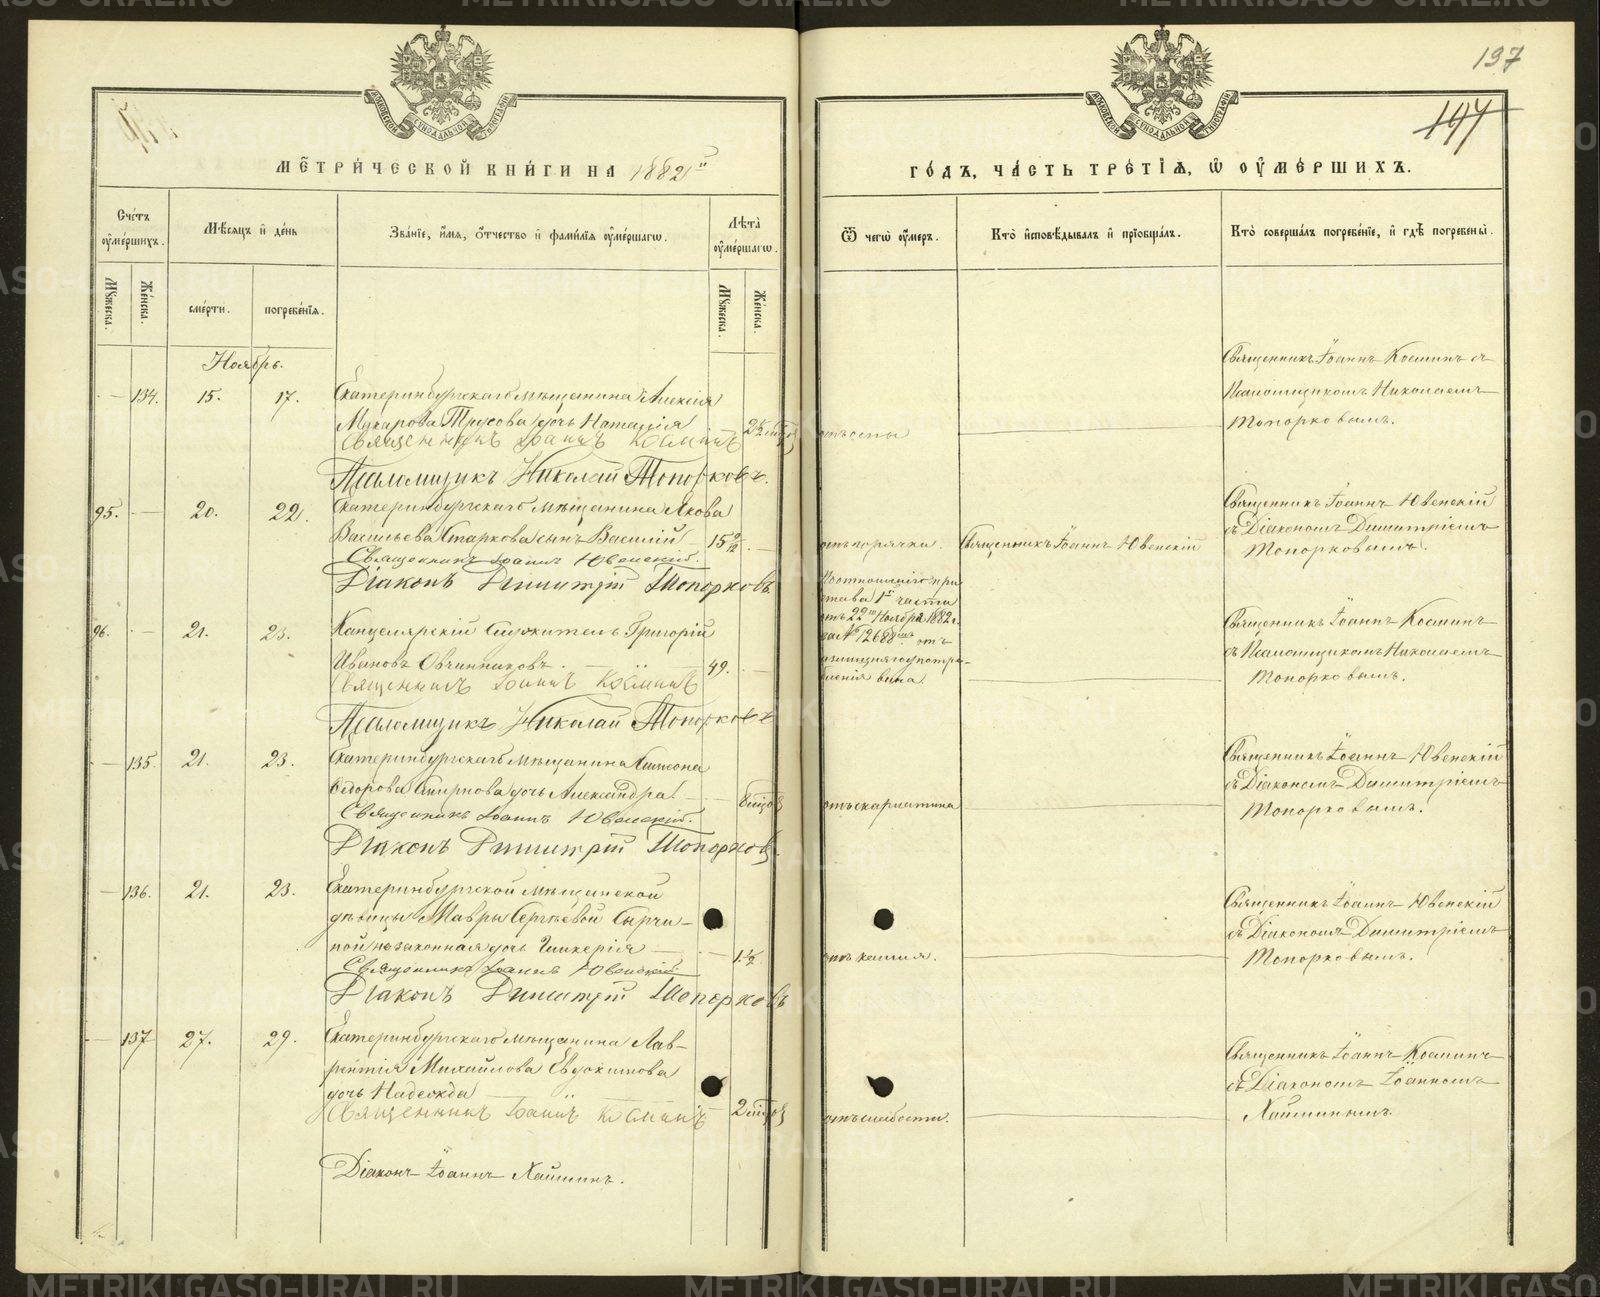 197
197
МЕТРИЧЕСКОЙ КНИГИ НА 1882й
ГОДЪ, ЧАСТЬ ТРЕТІЯ, Ѿ ОУМЕРШИХЪ.
Счетъ оумершихъ.
Мѣсяцъ и день
Званіе, имя, отчество и фамилія оумершагѡ.
Лѣта оумершагѡ.
Ѿ чегѡ оумеръ.
Кто исповѣдывалъ и пріобщалъ.
Кто совершалъ погребеніе, и гдѣ погребены.
Мужеска.
Женска.
смерти.
погребенія.
Мужеска.
Женска.
Ноябрь.
134. 15. 17. Екатеринбургскаго мѣщанина Алексія
дочь Наталія
отъ оспы
Священникъ Іоаннъ Косминъ съ
Псаломщикомъ Николаемъ
Топорковымъ.
Священникъ Іоаннъ Косминъ
Псаломщикъ Николай Топорковъ.
95. 20. 22. Екатеринбургскаго мѣщанина Якова
Васильева Старкова сынъ Василій 15 9/12
отъ горячки. Священникъ Іоаннъ Ювенскій
Священникъ Іоаннъ Ювенскій
съ Діакономъ Димитріемъ
Топорковымъ.
Священникъ Іоаннъ Ювенскій.
Діаконъ Димитрій Топорковъ.
96. 21. 23. Канцелярскій служитель Григорій
Ивановъ Овчинниковъ. 49.
По отношенію при
става 1й части
отъ 22го Ноября 1882 г.
за № 12688мъ отъ
излишняго употре-
бленія вина.
Священникъ Іоаннъ Косминъ
съ Псаломщикомъ Николаемъ
Топорковымъ.
Священникъ Іоаннъ Косминъ
Псаломщикъ Николай Топорковъ
135. 21. 23. Екатеринбургскаго мѣщанина Симеона
Ѳедорова Смирнова дочь Александра
отъ скарлатина
Священникъ Іоаннъ Ювенскій
съ Діакономъ Димитріемъ
Топорковымъ.
Священникъ Іоаннъ Ювенскій.
Діаконъ Димитрій Топорковъ.
136. 21. 23. Екатеринбургской мѣщанской
дѣвицы Мавры Сергѣевой
незаконная дочь Гликерія 1 1/2
отъ кашля.
Священникъ Іоаннъ Ювенскій
съ Діакономъ Димитріемъ
Топорковымъ.
Священникъ Іоаннъ Ювенскій
Діаконъ Димитрій Топорковъ
137 27. 29. Екатеринбургскаго мѣщанина Лав-
рентія Михайлова Евдокимова
дочь Надежда
отъ слабости.
Священникъ Іоаннъ Косминъ
съ Діакономъ Іоанномъ
Священникъ Іоаннъ Косминъ
Діаконъ Іоаннъ
METRIKI.GASO-URAL.RU